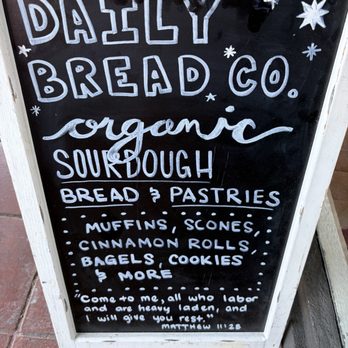 DAILY
BREAD CO.
organic
SOURDOUGH
BREAD & PASTRIES
MUFFINS, SCONES,
CINNAMON ROLLS,
BAGELS, COOKIES
& MORE
"Come to me, all who labor
and are heavy laden, and
I will give you rest."
MATTHEW 11:28